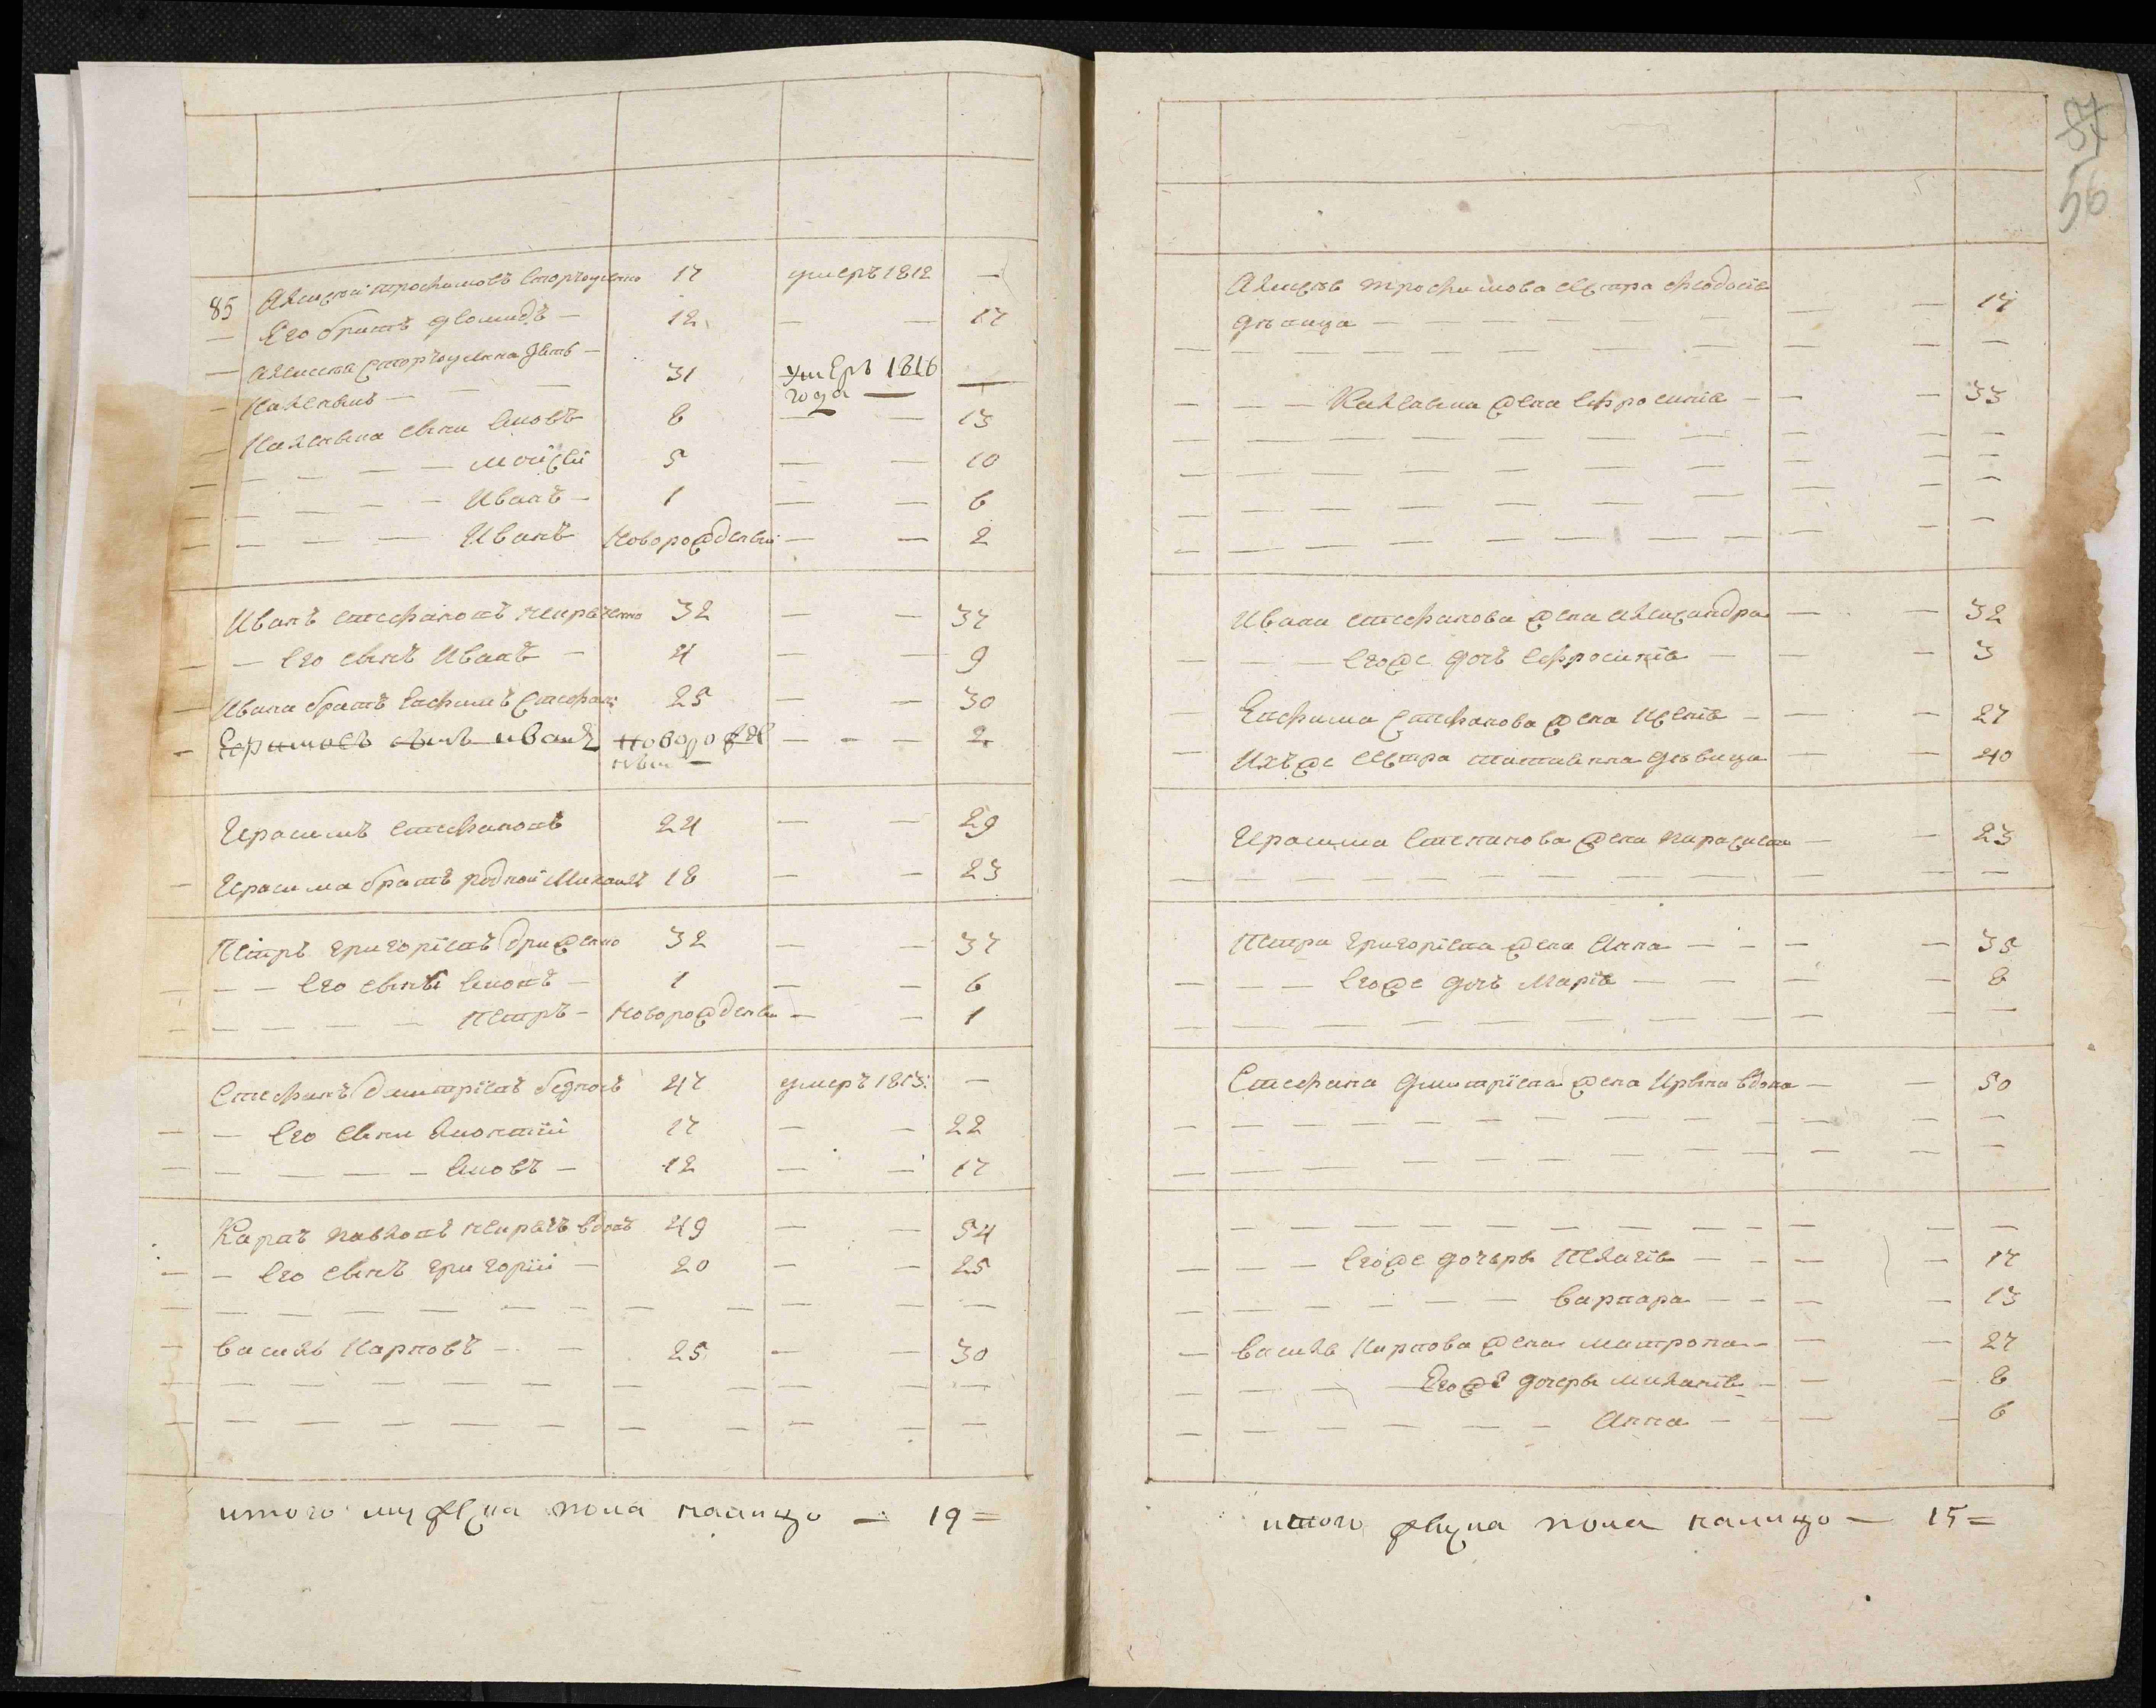 87
56
85 Алексей трофимовъ 17 умеръ 1812 —
— Его братъ Диомидъ — 12 — — 17
— Алексея зять —
31 умеръ 1816 —
года —
сыни Яковъ 8 — — 13
— — — Мойсей 5 — — 10
— — — Иванъ — 1 — — 6
— — — Иванъ Новорожденый — — 2
Иванъ стефановъ 32 — — 37
— — Его сынъ Иванъ — 4 — — 9
— Ивана братъ Ефимъ Стефан: 25 — — 30
— сынъ иванъ новорожде — - — 2
ный —
Герасимъ стефановъ 24 — — 29
— Герасима братъ родной Михаилъ 18 — — 23
Петръ григоріевъ 32 — — 37
— — — Его сыны Яковъ — 1 — — 6
— — — — — Петръ — Новорожденый — — 1
Стефанъ дмитріевъ 47 умеръ 1813: —
— — Его сыни Леонтій 17 — — 22
— — — — — Яковъ — 12 — — 17
Карпъ павловъ вдовъ 49 — — 54
— — Его сынъ григорій — 20 — — 25
— Василь Карповъ — — 25 — — 30
итого мужеска пола налицо — 19 =
Алексея трофимова сестра феодосія
дѣвица — — — — — — — — 17
— — — жена Ефросинія — — — 33
Ивана стефанова жена александра — — 32
— — — — Егоже дочь Ефросинія — — — 3
— Ефима Стефанова жена — — — 27
— Ихъже сестра татіянна дѣвица — — 40
Герасима Степанова жена параскева — — 23
Петра григоріева жена Анна — - — — 35
— — — — Егоже дочь Марія — — — — 8
Стефана дмитріева жена Ирина вдова — — 50
— — — — Егоже дочеры Пелагія — — — — 17
— — — — — — — Варвара — — — — 13
— Василя Карпова жена матрона — — — 27
— — — — Егоже дочеры миланія — — — 8
— — — — — — — Анна — — — — 6
итого женска пола налицо — 15 =